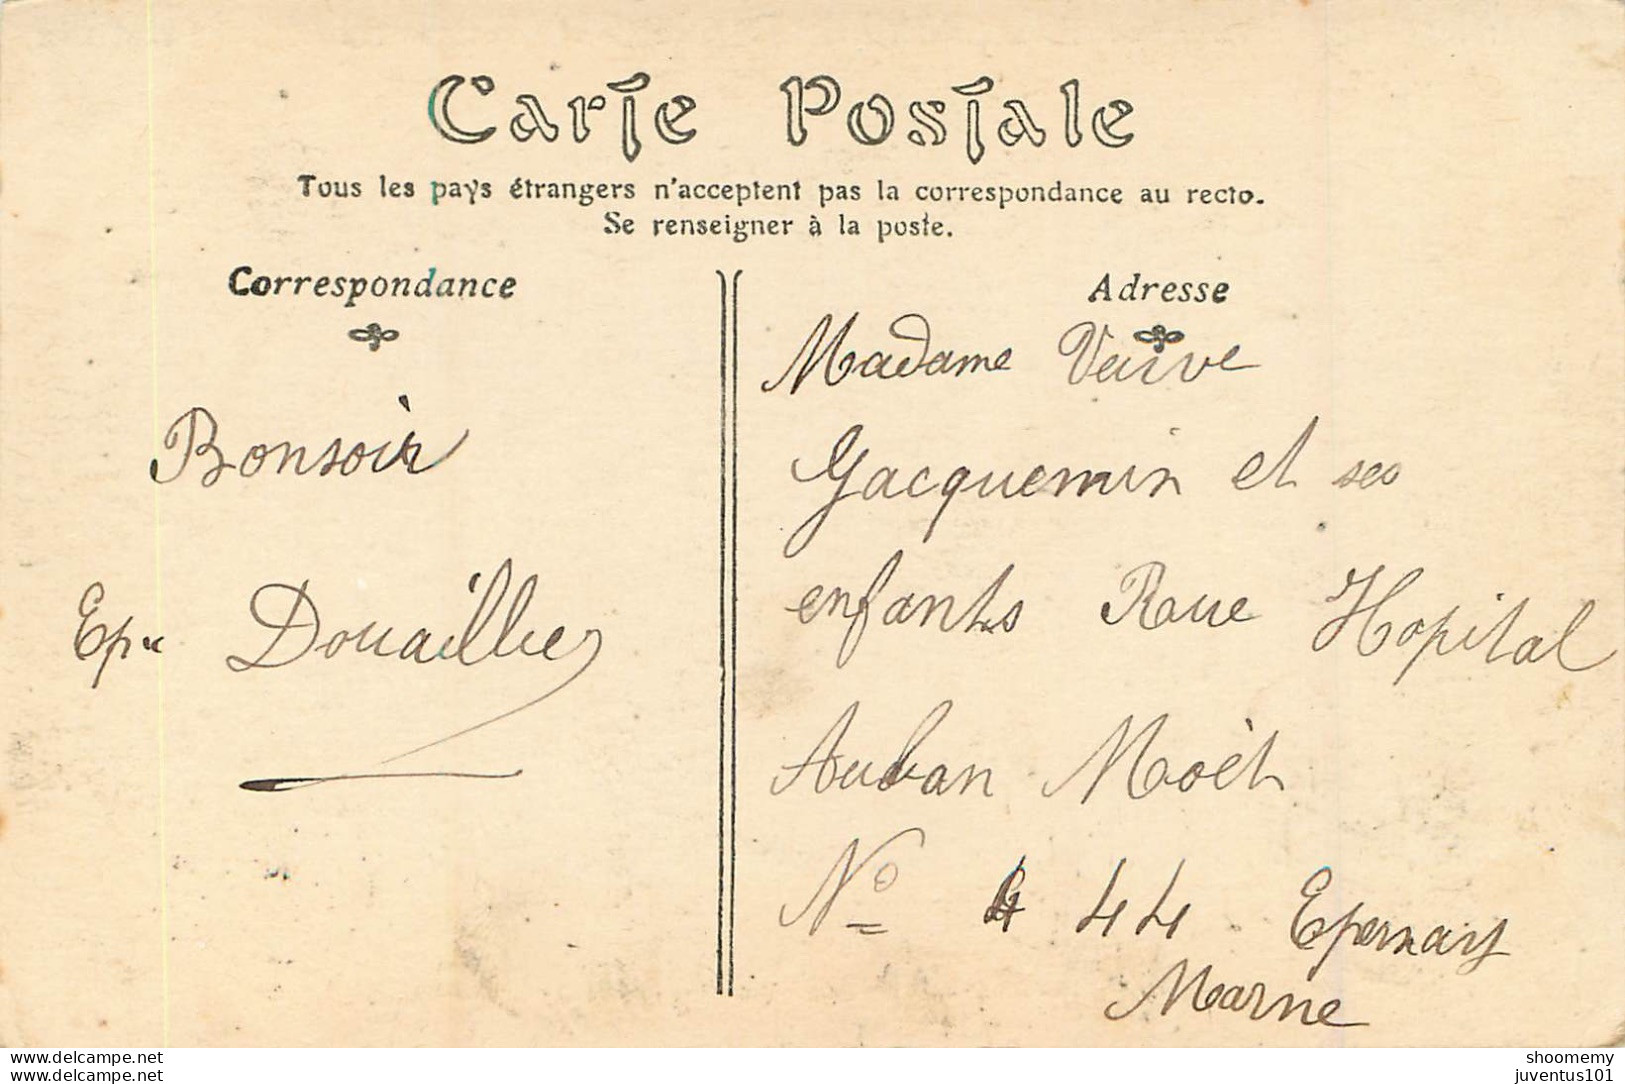 Carte Postale
Tous les pays étrangers n'acceptent pas la correspondance au recto.
Se renseigner à la poste.
Correspondance
Bonsoir
Douaillie
Adresse
Madame Veuve
Gacquemin et ses
enfants Rue Hopital
Auban Moèt
Nº 4 44 Epernay
Marne
Luogo e ora
Luogo e ora
shoomemy
juventus101